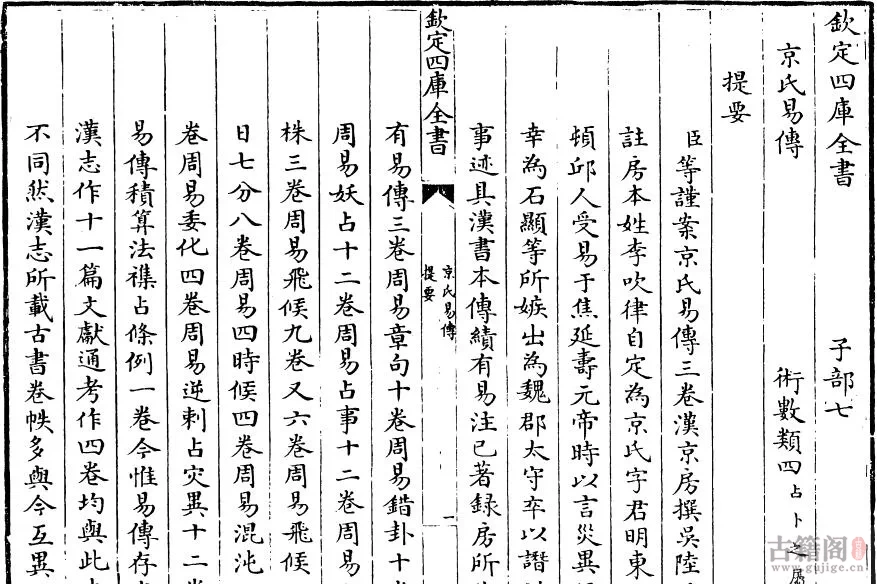 欽定四庫全書 子部七
京氏易傳 術數類四占卜之屬
提要
臣等謹案京氏易傳三卷漢京房撰吳陸
註房本姓李吹律自定為京氏字君明東
頓邱人受易于焦延壽元帝時以言災異
幸為石顯等所嫉出為魏郡太守卒以譖
事迹具漢書本傳績有易注已著錄房所
欽定四庫全書
京氏易傳
提要
一
有易傳三卷周易章句十卷周易錯卦十
周易妖占十二卷周易占事十二卷周易
株三卷周易飛候九卷又六卷周易飛候
日七分八卷周易四時候四卷周易混沌
卷周易委化四卷周易逆刺占灾異十二
易傳積算法襍占條例一卷今惟易傳存
漢志作十一篇文獻通考作四卷均與此
不同然漢志所載古書卷帙多與今互異
古籍阁
www.gujige.cn